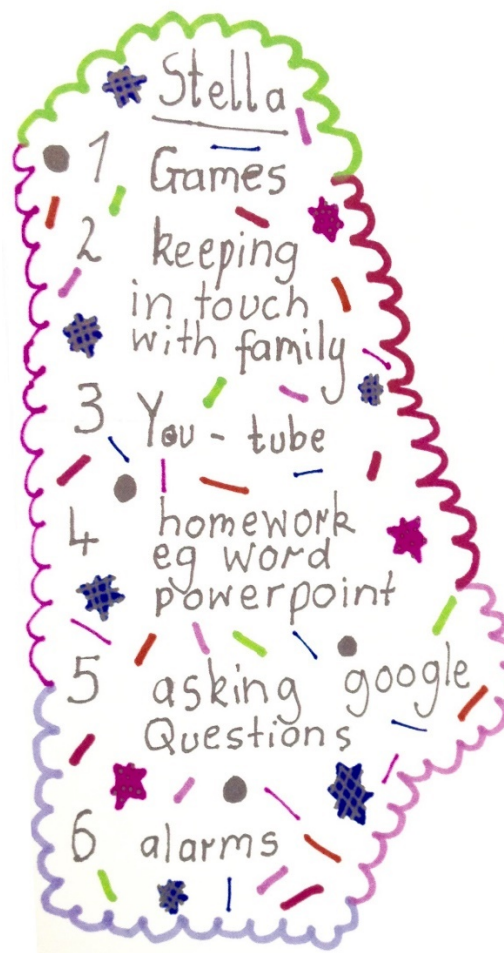 Stella
1 Games
2 keeping
in touch
with family
3 You - tube
4 homework
eg word
powerpoint
5 asking google
Questions
6 alarms